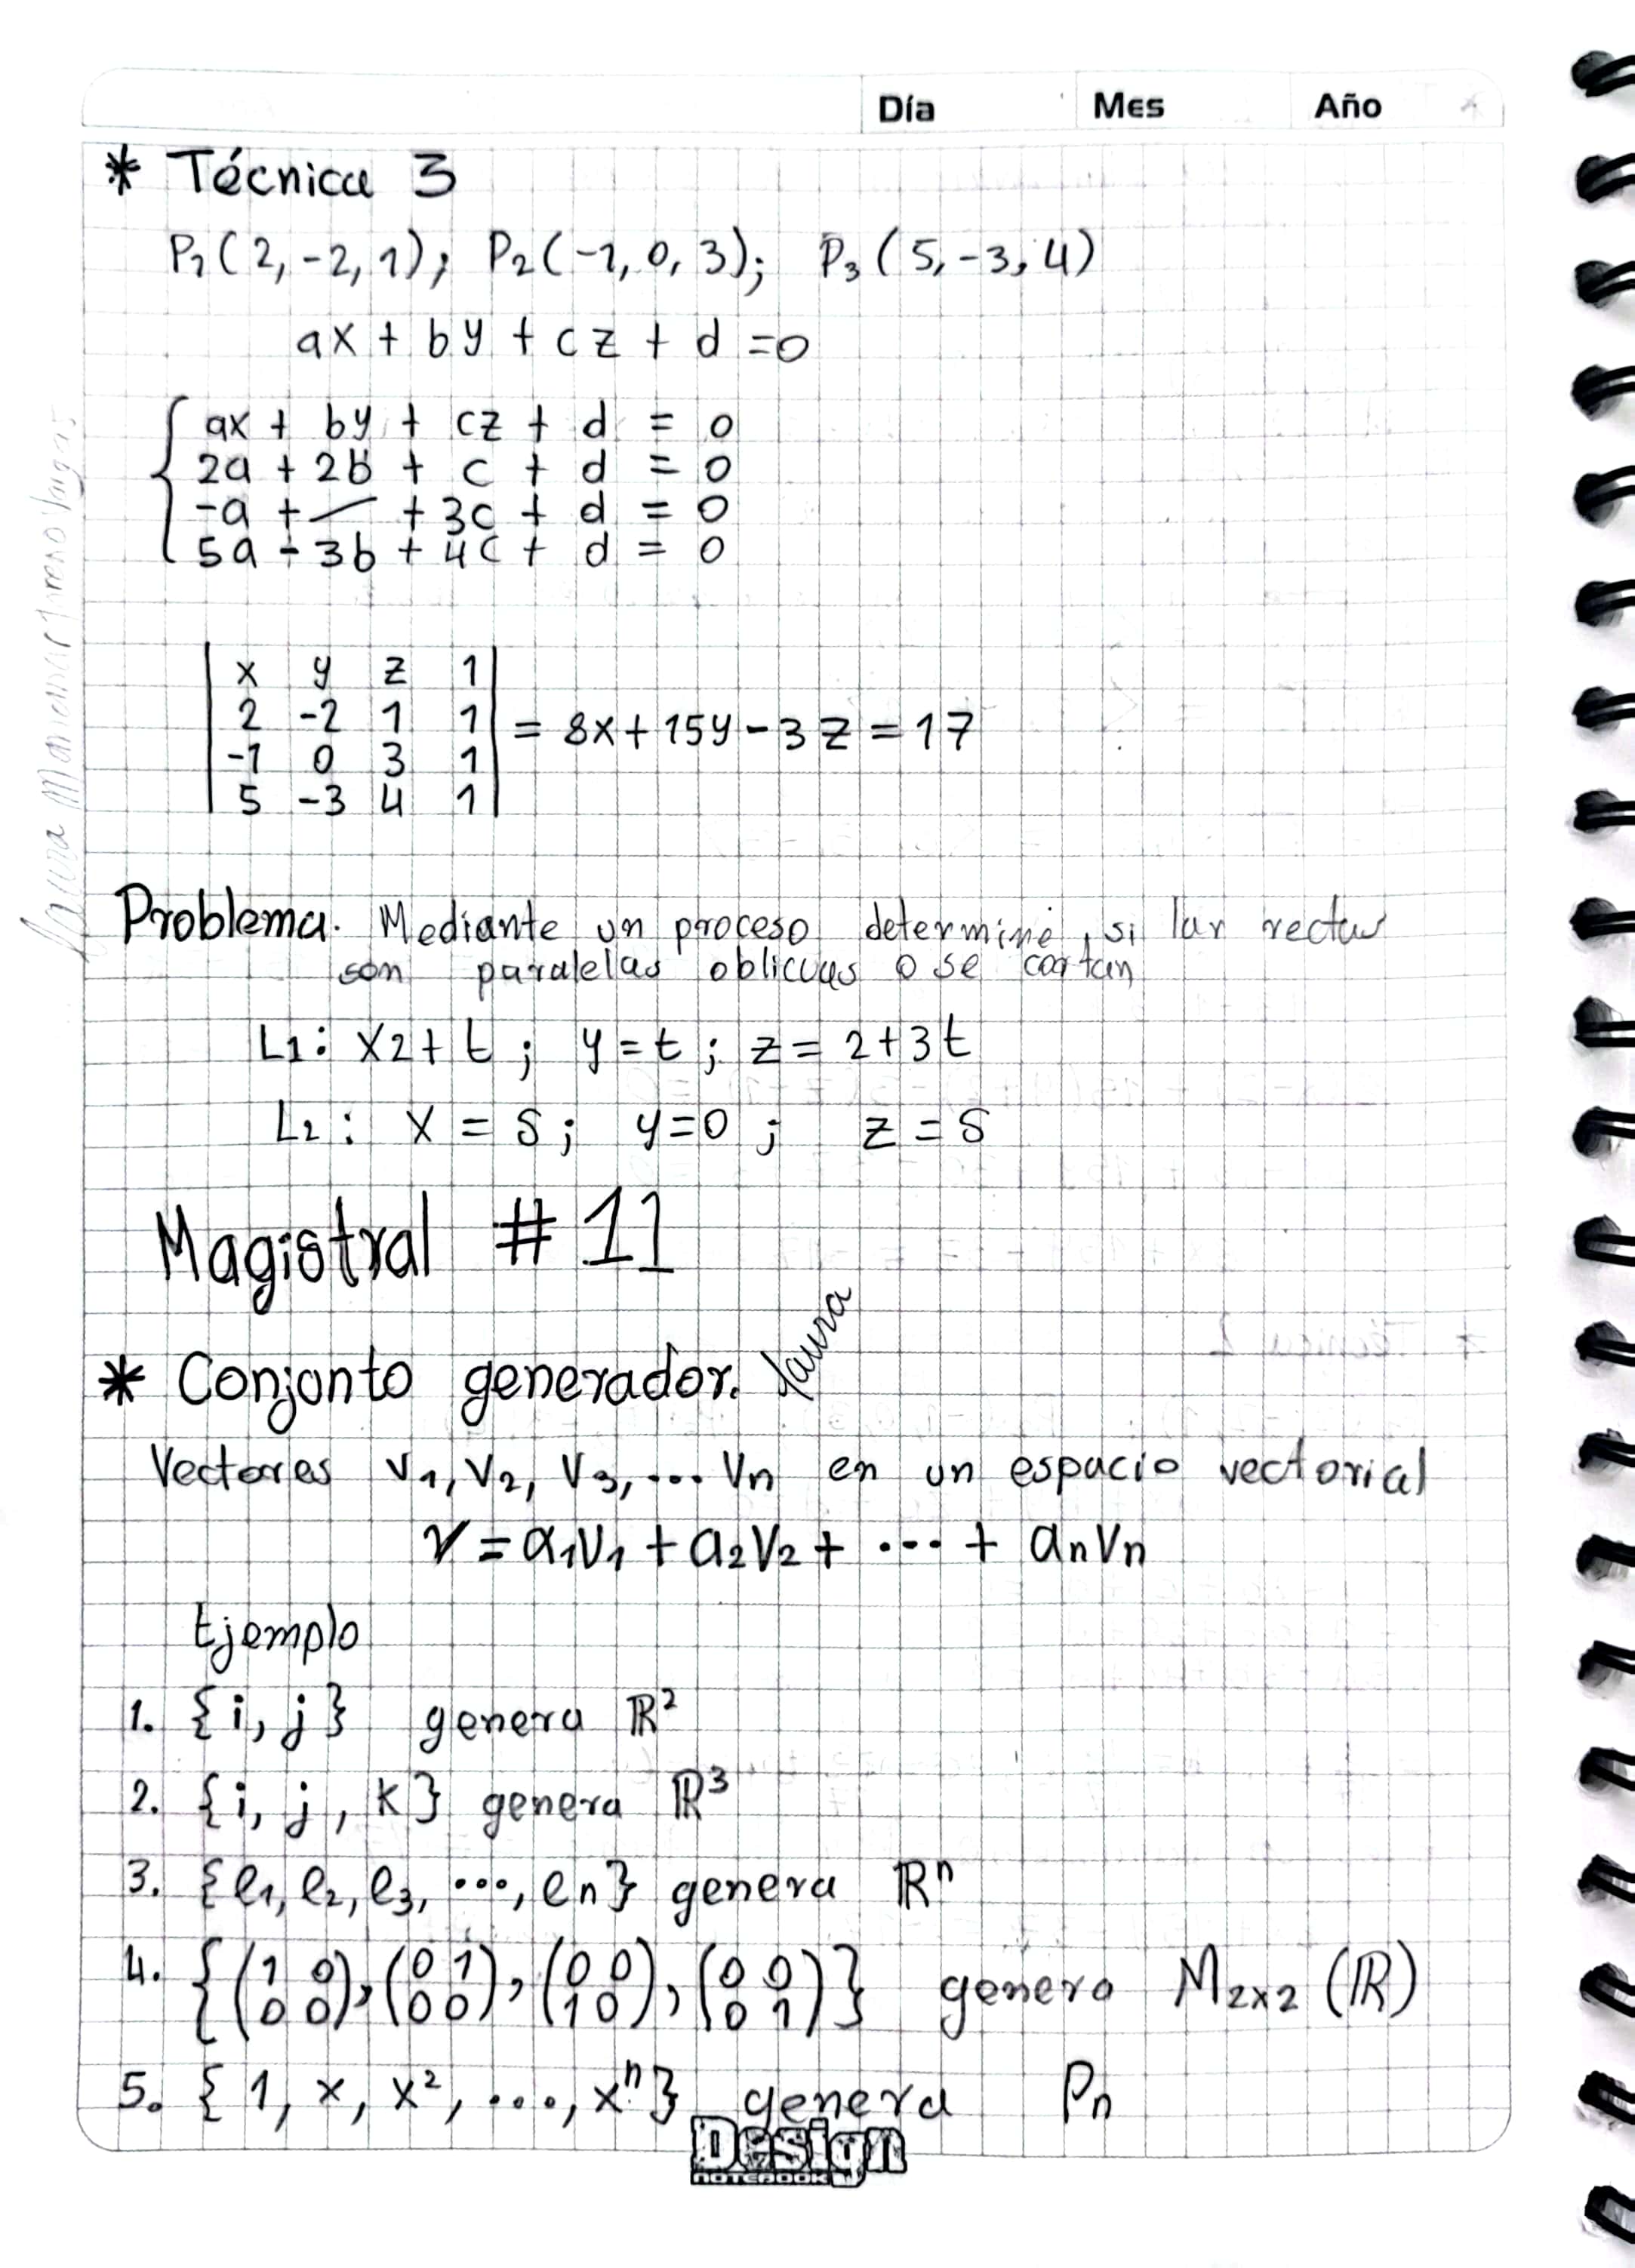 Día Mes Año
* Técnica 3
P₁(2,-2,1); P₂(-1,0,3); P₃(5,-3,4)
ax + by + cz + d = 0
ax + by + cz + d = 0
2a + 2b + c + d = 0
-a + — + 3c + d = 0
5a - 3b + 4c + d = 0
| x y z 1 |
| 2 -2 1 1 | = 8x + 15y - 3z = 17
| -1 0 3 1 |
| 5 -3 4 1 |
Problema. Mediante un proceso determine, si las rectas
son paralelas oblicuas o se cortan
L₁: x2+t; y=t; z=2+3t
L₂: x=s; y=0; z=s
Magistral #11
* Conjunto generador. Laura
Vectores v₁, v₂, v₃, ... vn en un espacio vectorial
v = a₁v₁ + a₂v₂ + ... + anvn
Ejemplo
1. {i, j} genera ℝ²
2. {i, j, k} genera ℝ³
3. {e₁, e₂, e₃, ..., en} genera ℝⁿ
4. {(1 0), (0 1), (0 0), (0 0)} genera M₂ₓ₂ (ℝ)
(0 0) (0 0) (1 0) (0 1)
5. {1, x, x², ..., xⁿ} genera Pn
Design
NOTEBOOK
Laura